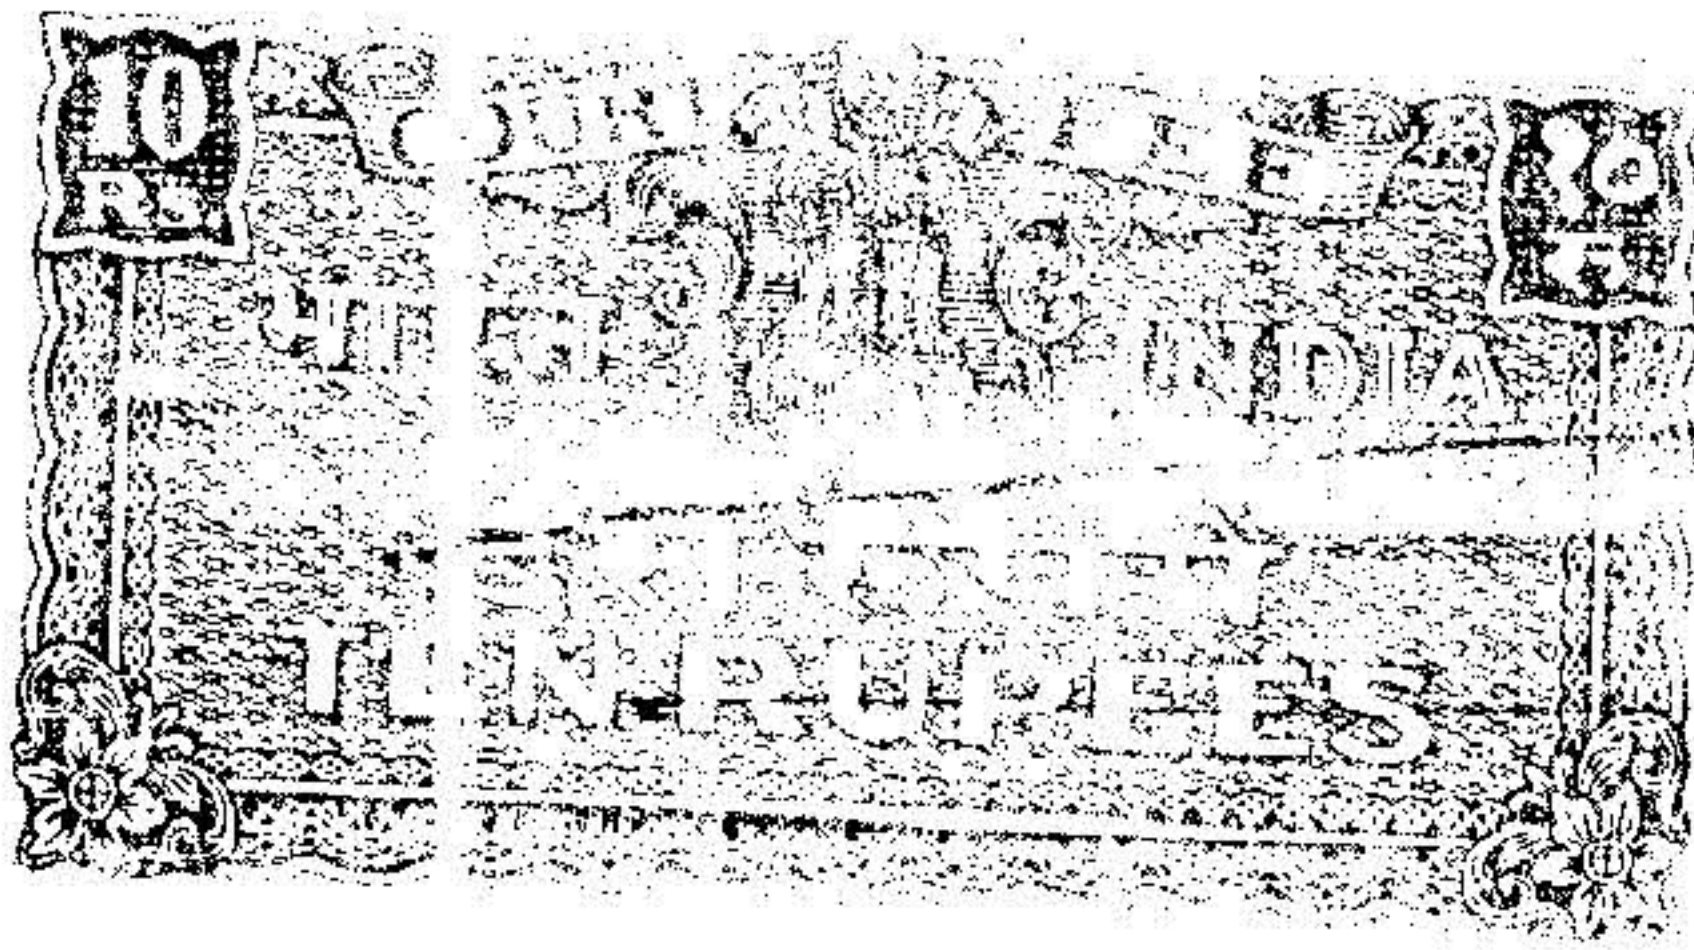 10 १०
Rs. रु
COURT FEE
भारत INDIA
TEN RUPEES